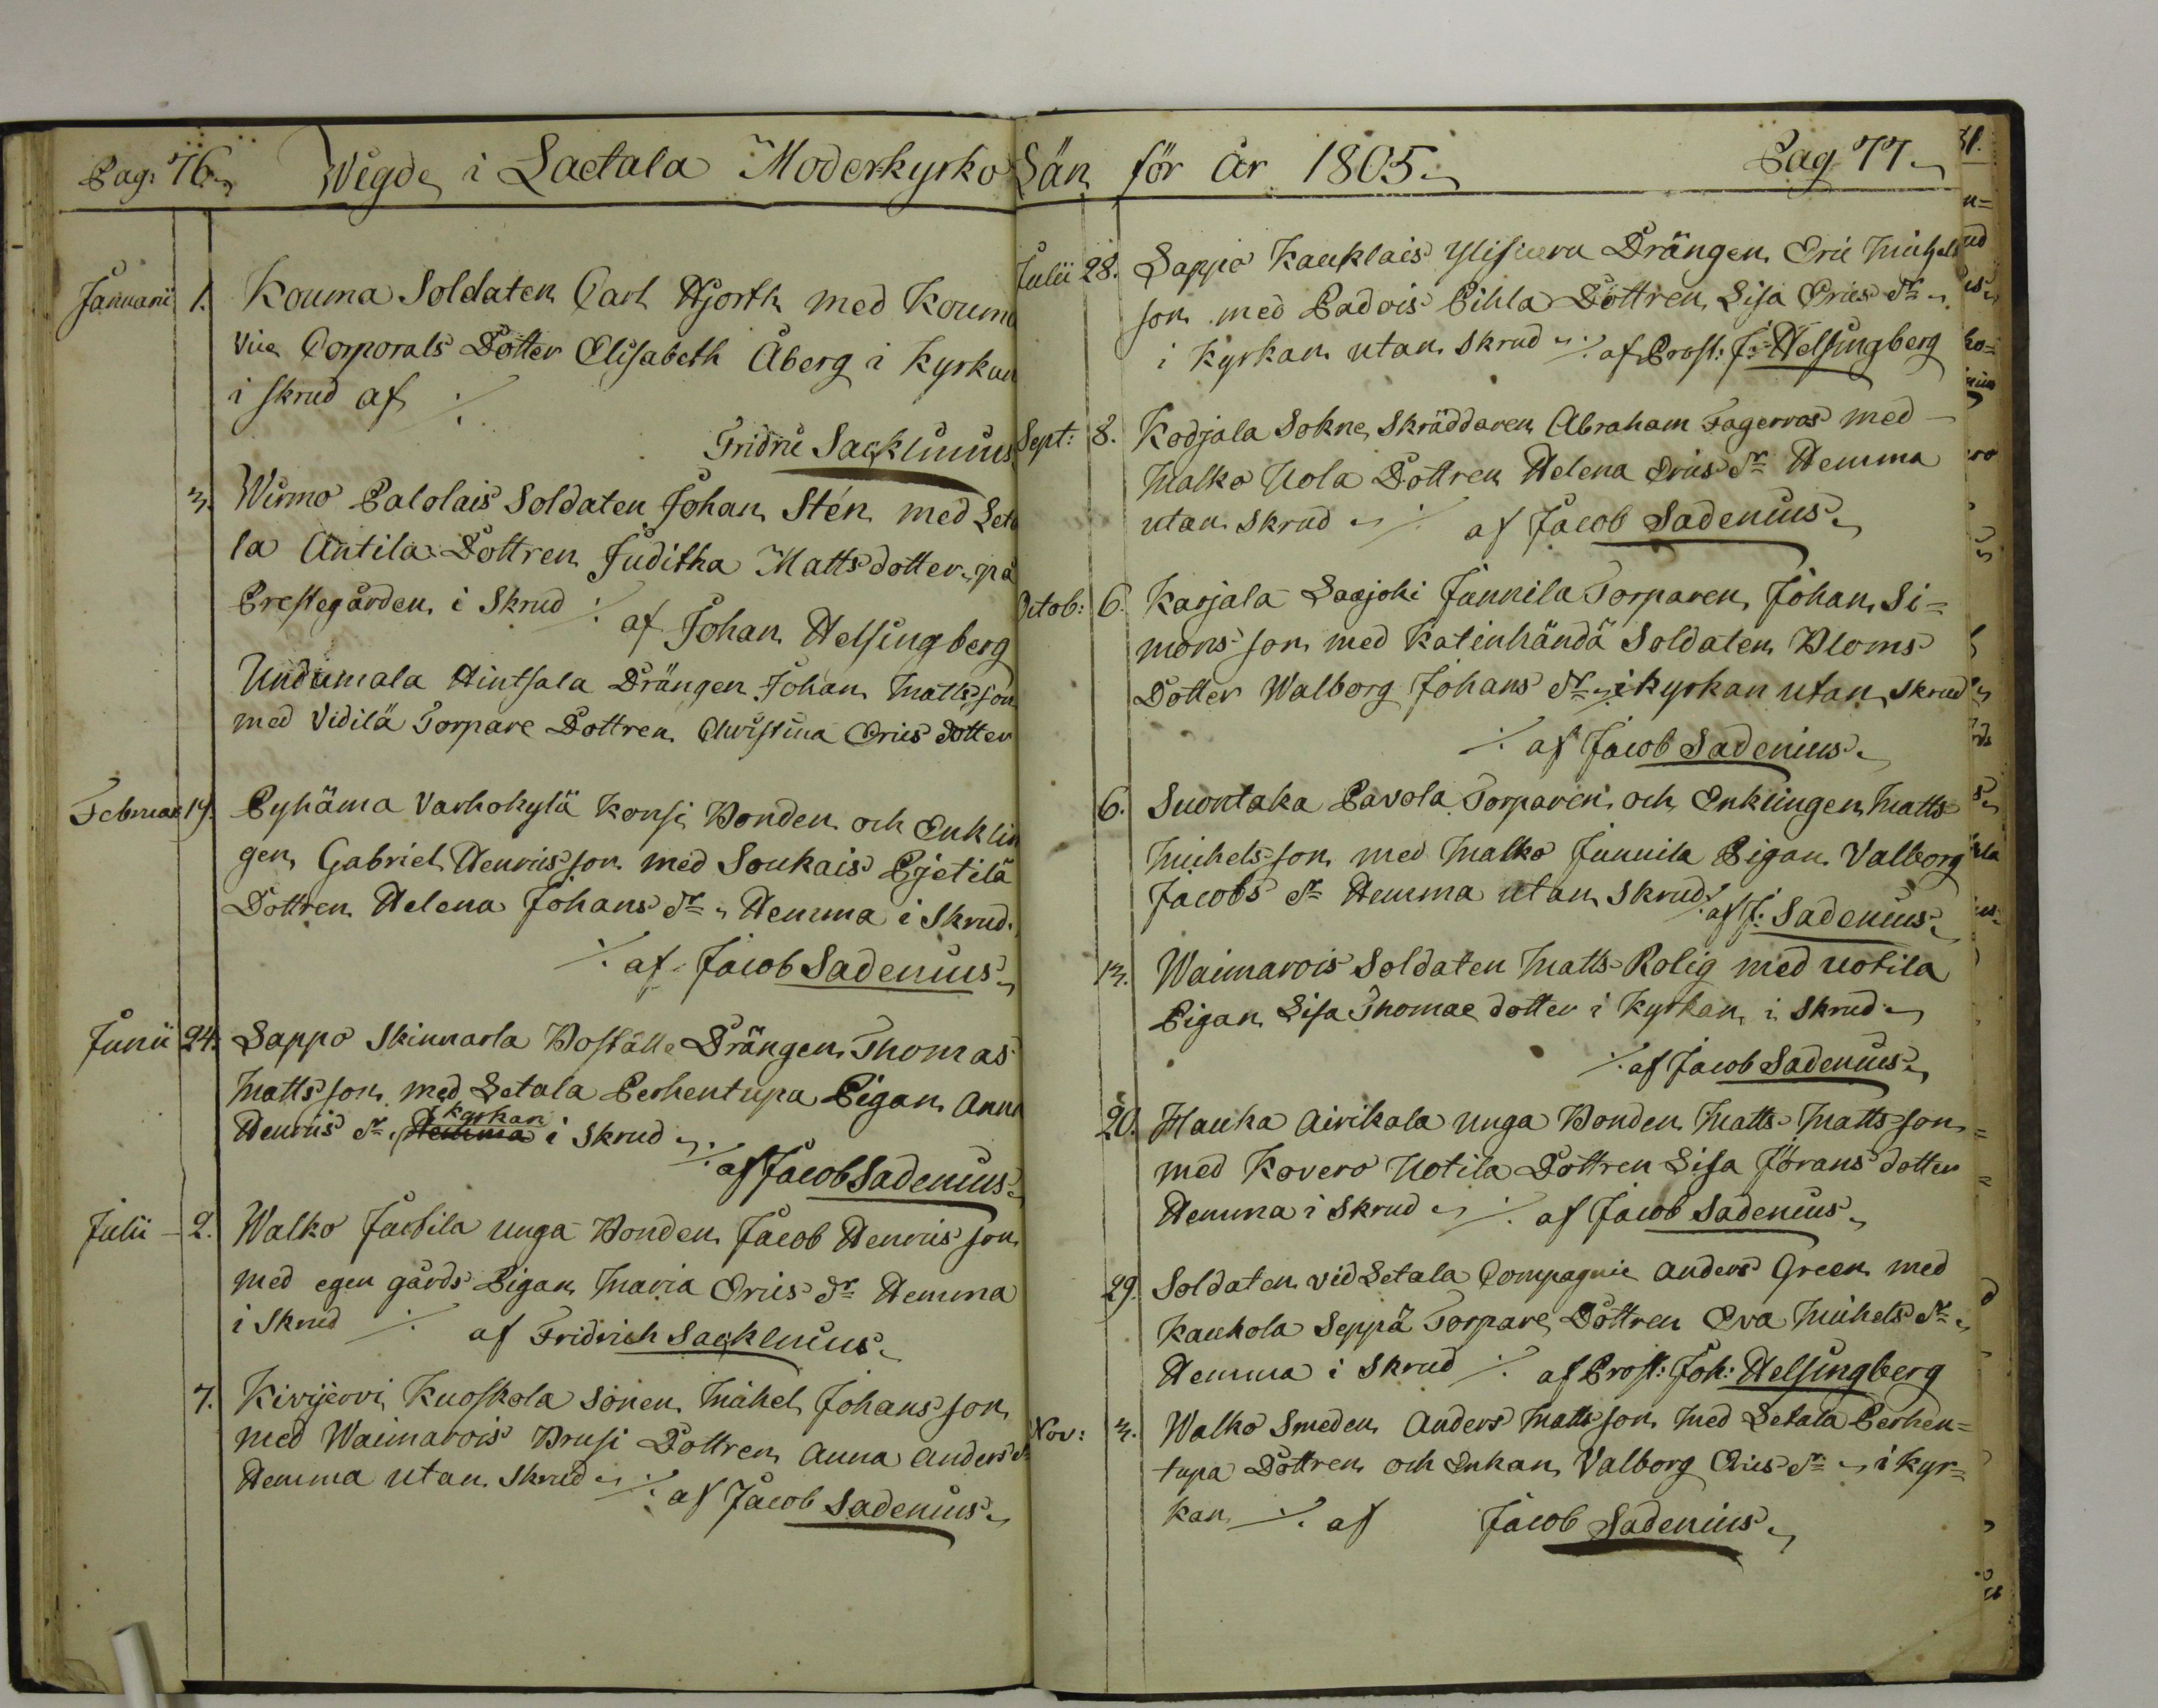 Pag: 76. Wigde i Laetala Moderkyrko Län för år 1805. Pag 77.
Januarii 1. Kouma Soldaten Carl Hjorth med Kouma
Vice Corporals Dotter Elisabeth Åberg i Kyrkan
i skrud af ·/.
Fridric Sacklinius.
3. Wirmo Palolais Soldaten Johan Stén med Leta
la Antila Dottren Juditha Matts dotter, på
Prestegården i Skrud ·/. af Johan Helsingberg
Undamala Hintsala Drängen Johan Mattsson
med Vidilä Torpare Dottren Christina Erics dotter
Februar 19. Pyhäma Varhokylä Konsi Bonden och Enklin
gen Gabriel Henricsson med Soukais Pjetilä
Dottren Helena Johans dr. Hemma i Skrud.
·/. af Jacob Sadenius.
Junii 24. Sappo Skinnarla Boställe Drängen Thomas
Mattsson med Letala Perhentupa Pigan Anna
kyrkan
Henrics dr. Hemma i Skrud
·/. af Jacob Sadenius.
Julii 2. Walko Jactila unga Bonden Jacob Henricsson
med egen gårds Pigan Maria Erics dr. Hemma
i Skrud ·/. af Fridrich Sacklinius.
7. Kivijervi Kuoskola Sonen Michel Johansson
med Waimarois Brusi Dottren Anna Anders dr
Hemma utan Skrud ·/. af Jacob Sadenius.
Julii 28. Sappo Kauklais Drängen Eric Michels
son med Padois Pihla Dottren Lisa Erics dr.
i Kyrkan utan skrud ·/. af Prost: J: Helsingberg
Sept: 8. Kodjala Sokne Skräddaren Abraham Fagerroos med
Malko Uola Dottren Helena Erics dr Hemma
utan Skrud ·/. af Jacob Sadenius.
Octob: 6. Karjala Saajoki Junnila Torparen Johan Si=
monsson med Katinhändä Soldaten Bloms
Dotter Walborg Johans dr. i kyrkan utan Skrud
·/. af Jacob Sadenius.
6. Suontaka Pavola Torparen och Enklingen Matts
Michelsson med Malko Junnila Pigan Valborg
Jacobs dr Hemma utan Skrud ·/. af J: Sadenius.
13. Waimarois Soldaten Matts Rolig med Uotila
Pigan Lisa Thomae dotter i Kyrkan i Skrud
·/. af Jacob Sadenius.
20. Hauka Airikala unga Bonden Matts Mattsson
med Kovero Uotila Dottren Lisa Jörans dotter
Hemma i Skrud ·/. af Jacob Sadenius.
29. Soldaten vid Letala Compagnie Anders Green med
Kaukola Seppä Torpare Dottren Eva Michels dr.
Hemma i Skrud ·/. af Prost: Joh: Helsingberg
Nov: 3. Walko Smeden Anders Mattsson med Letala Perhen=
tupa Dottren och Enkan Valborg Erics dr. i kyr=
kan ·/. af Jacob Sadenius.